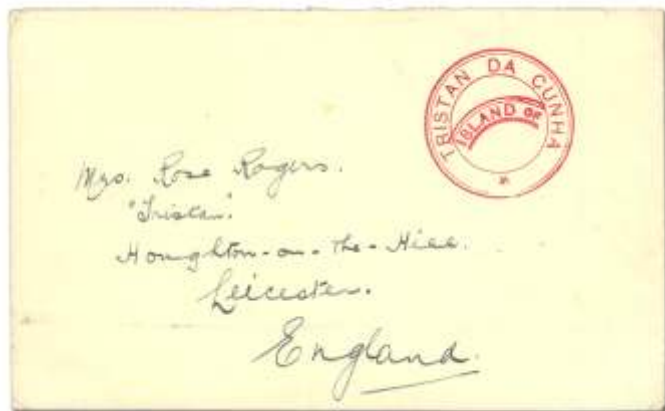 TRISTAN DA CUNHA
ISLAND OF
Mrs. Rose Rogers.
"Tristan".
Houghton-on-the-Hill.
Leicester.
England.